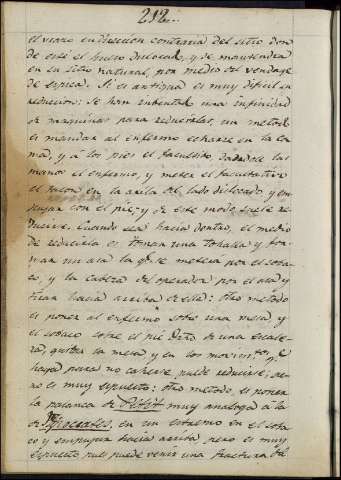 212..
el brazo en direccion contraria del sitio don
de esté el hueso dislocado, y se mantendra
en su sitio natural, por medio del vendage
de espica. Si es antigua es muy dificil su
reduccion: se han intentado una infinidad
de maquinas para reducirlas, un metodo
es mandar al enfermo echarse en la ca
ma, y a los pies el facultativo dandole las
manos el enfermo, y meter el facultativo
el talon en la axila del lado dislocado y em
pujar con el pie, y de este modo suele re
ducirse. Cuando sea hacia dentro, el medio
de reducirla es toman una tohalla y for
man un asa la qe. se metera por el soba
co, y la cabeza del operador por el asa y
tiran hacia arriba de ella: otro metodo
es poner al enfermo sobre una mesa, y
el sobaco sobre el pie de una escale
ra, quitar la mesa y en los movimtos. qe.
haga para no caerse puede reducirse; pe
ro es muy espuesto: otro metodo, es poner
la palanca de Petit muy analoga á la
de Hipocrates, en un estremo en el soba
co y empujar hacia arriba, pero es muy
espuesto pues puede venir una fractura del